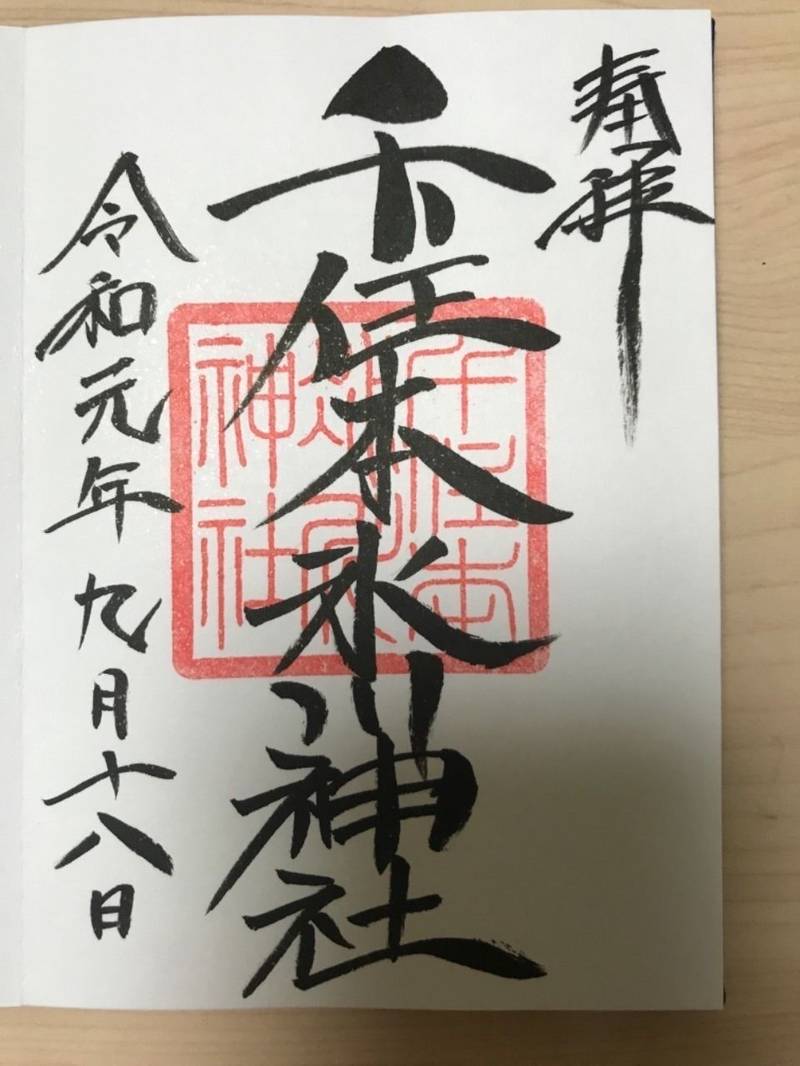 奉拝
千住本氷川神社
令和元年九月十八日
千住本
氷川
神社